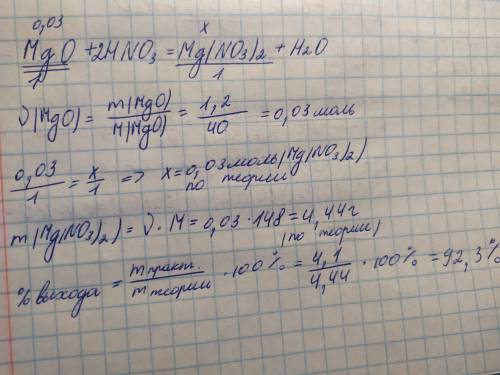 0,03 x
MgO + 2HNO₃ = Mg(NO₃)₂ + H₂O
1 1
ν(MgO) = m(MgO)/M(MgO) = 1,2/40 = 0,03 моль
0,03/1 = x/1 => x = 0,03 моль (Mg(NO₃)₂)
по теории
m(Mg(NO₃)₂) = ν · M = 0,03 · 148 = 4,44 г
(по теории)
% выхода = m практ./m теории · 100% = 4,1/4,44 · 100% = 92,3%